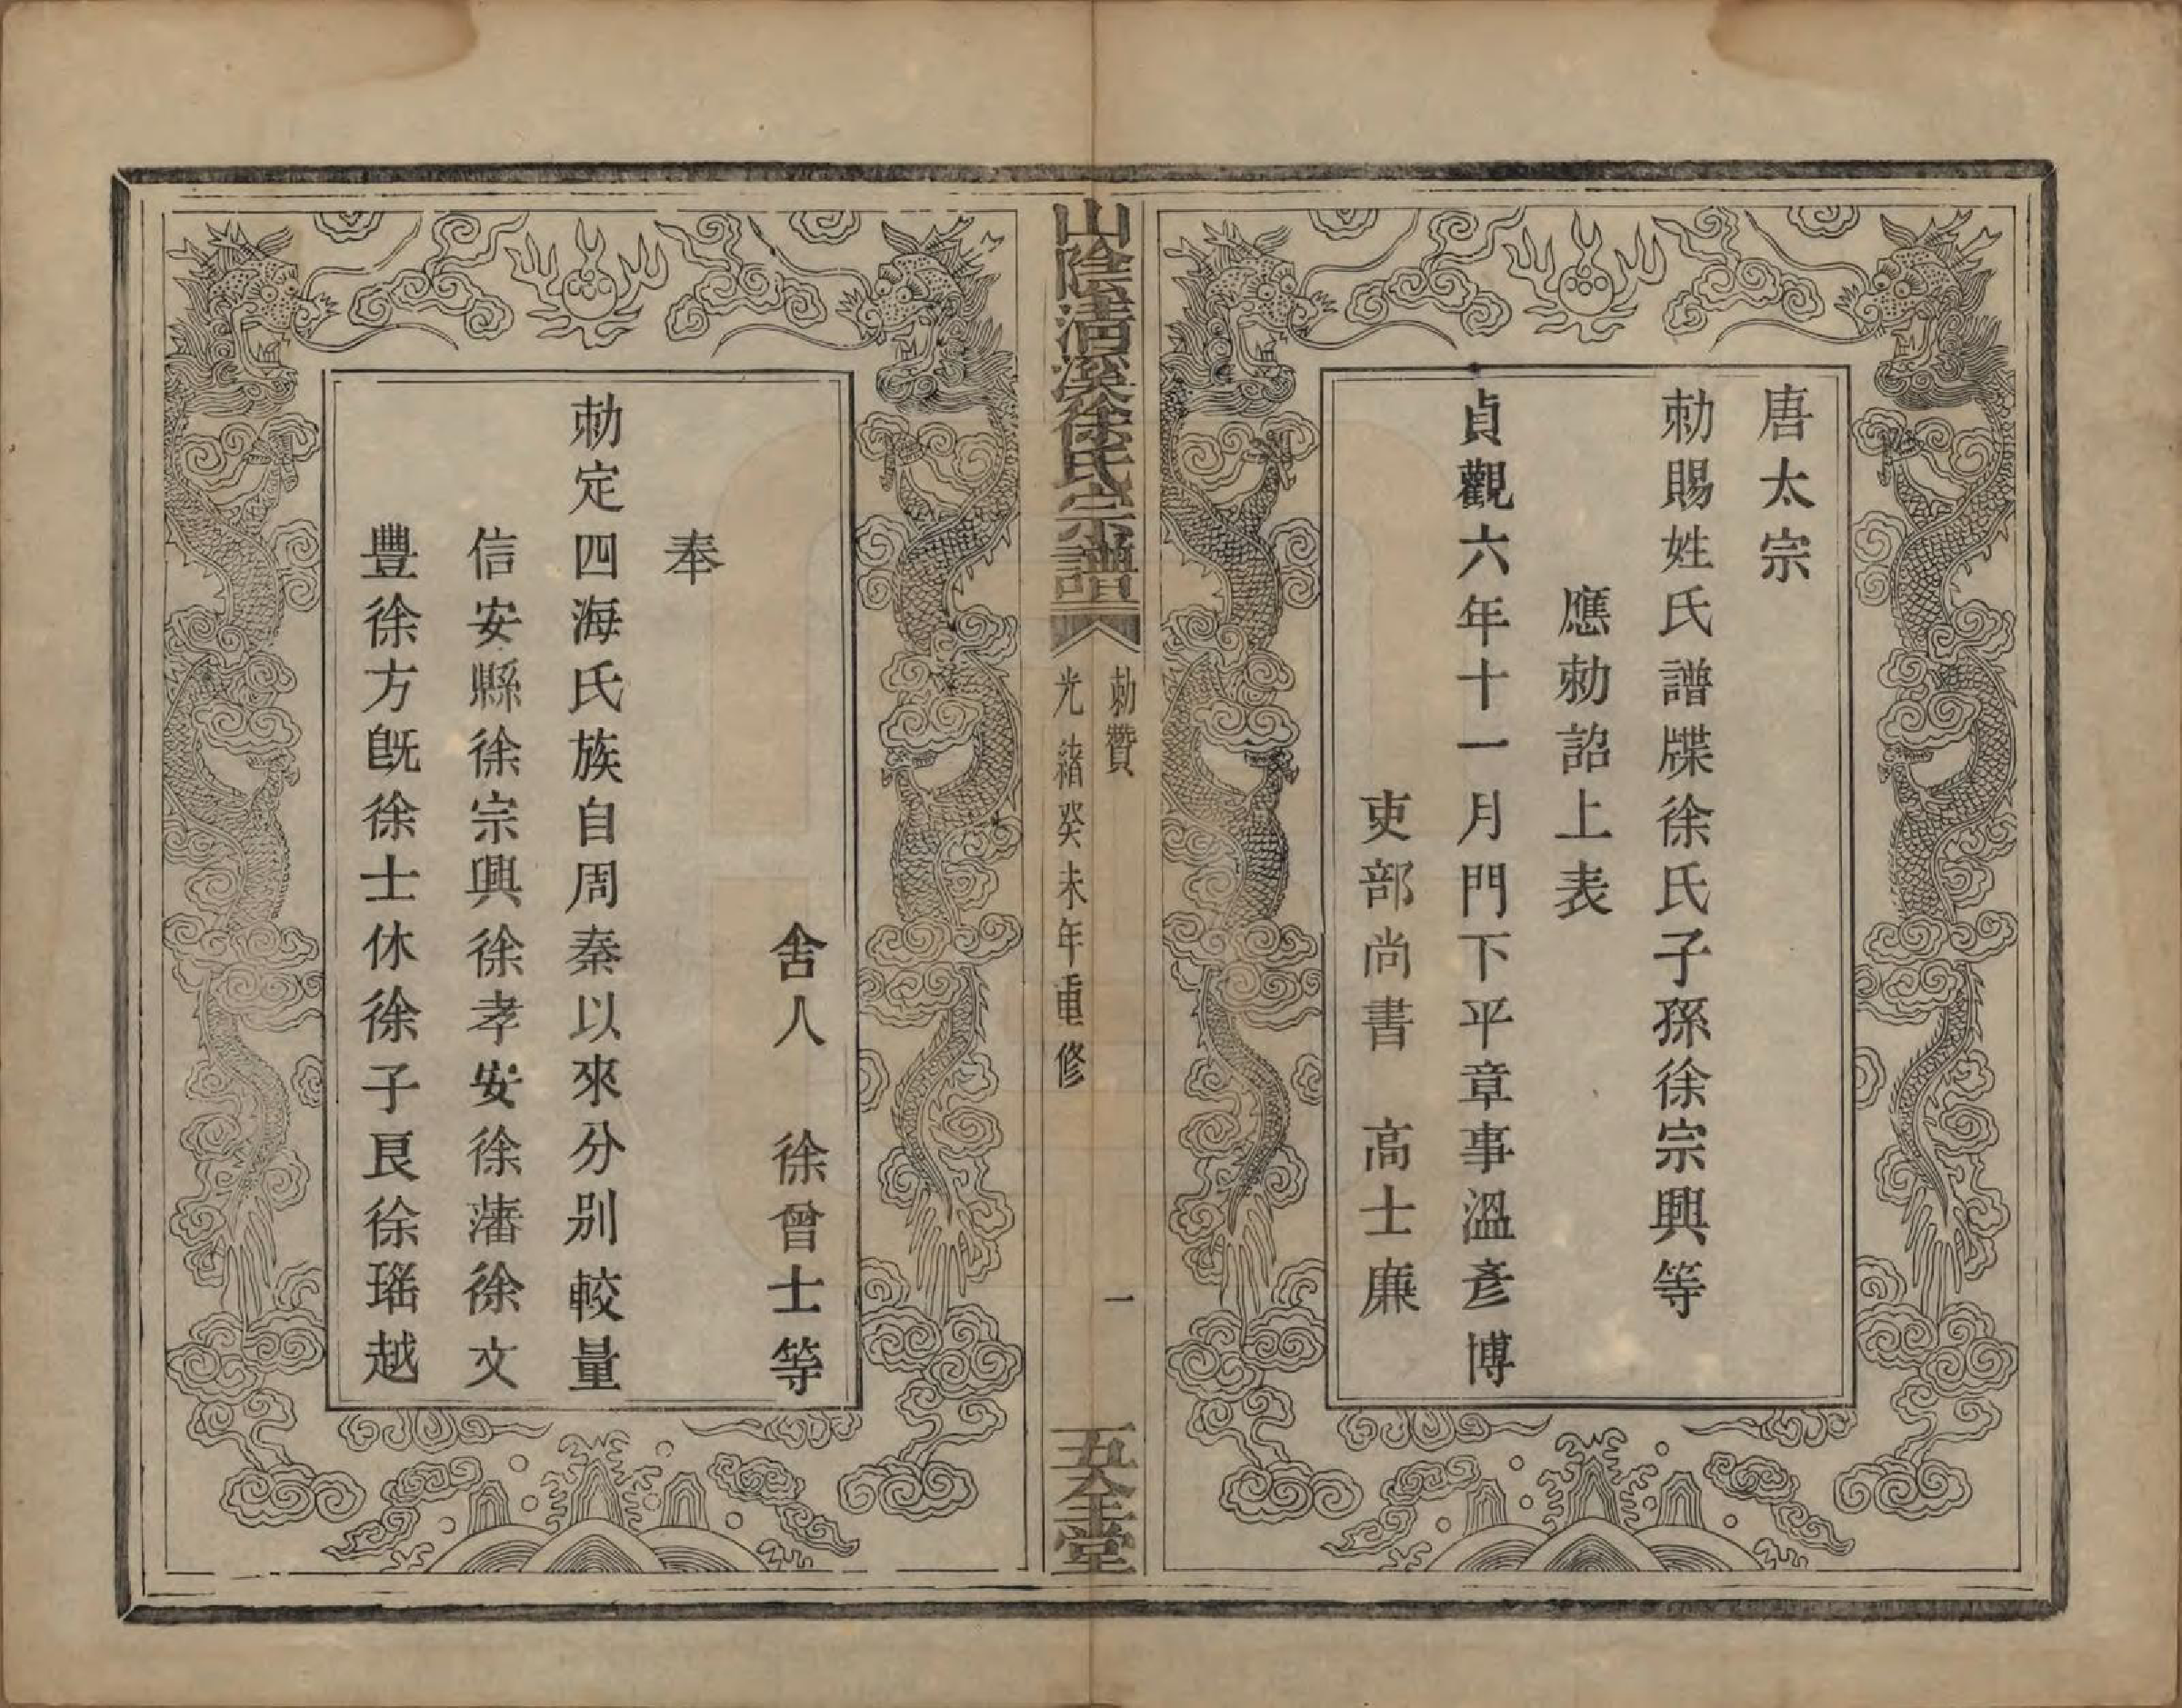 唐太宗
勅賜姓氏譜牒徐氏子孫徐宗興等
應勅詔上表
貞觀六年十一月門下平章事溫彥博
吏部尚書　高士廉
山陰清溪徐氏宗譜
勅贊
一
光緒癸未年重修
一本堂
舍人　徐曾士等
奉
勅定四海氏族自周秦以來分別較量
信安縣徐宗興徐孝安徐藩徐文
豐徐方旣徐士休徐子良徐瑤越